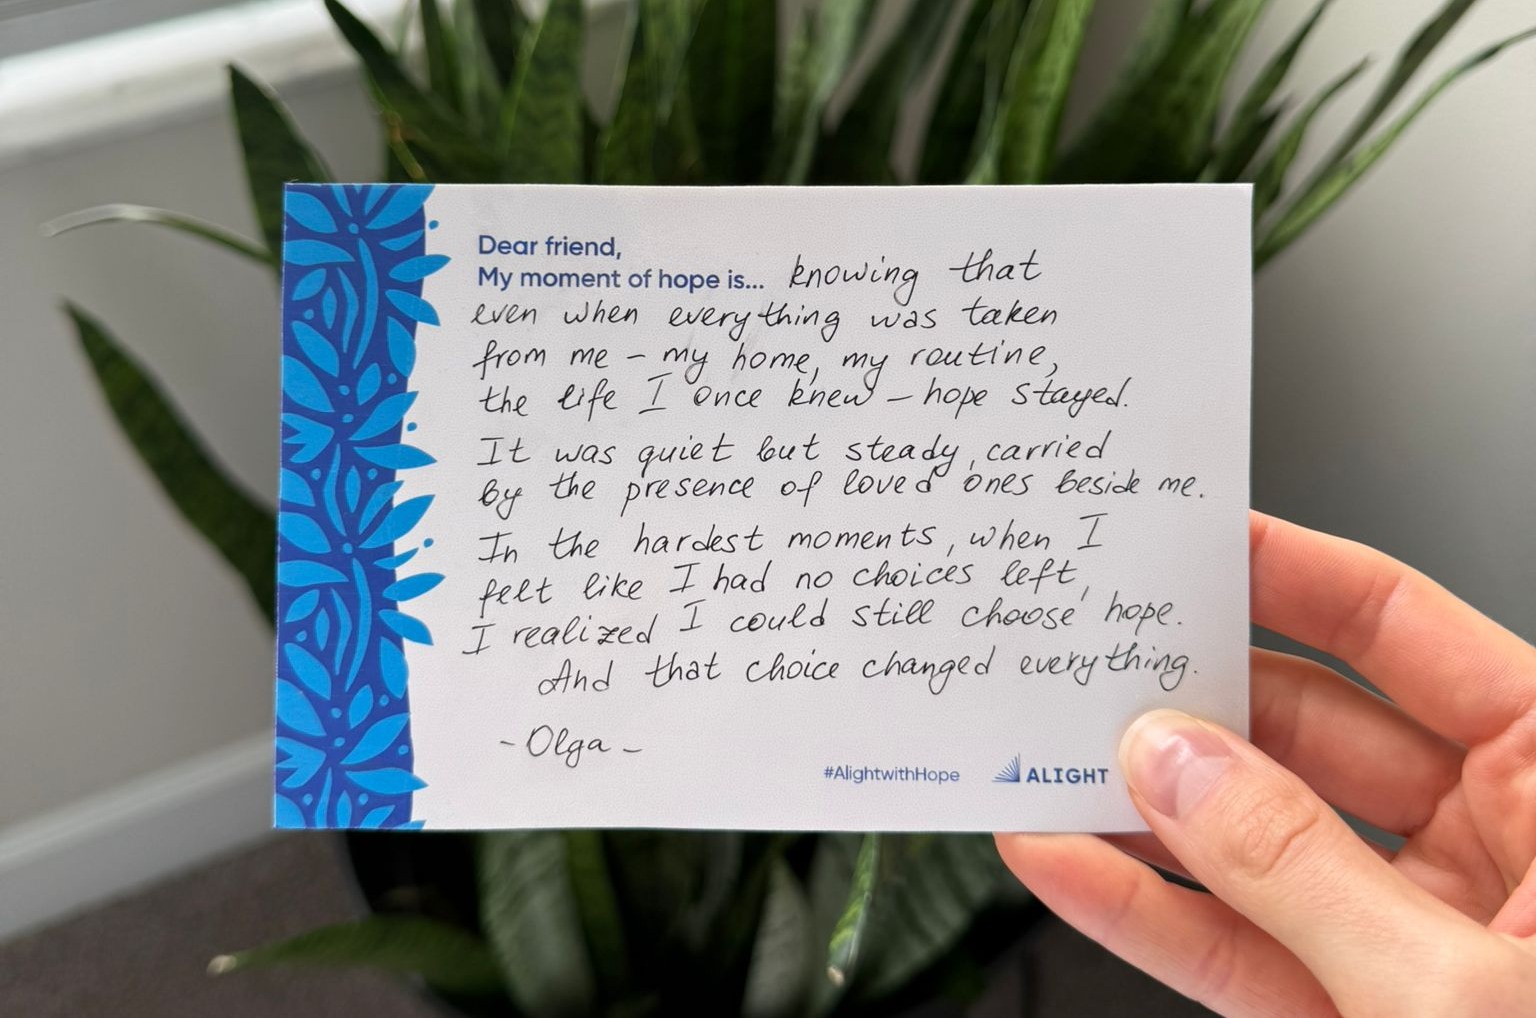 Dear friend,
My moment of hope is... knowing that
even when everything was taken
from me – my home, my routine,
the life I once knew – hope stayed.
It was quiet but steady, carried
by the presence of loved ones beside me.
In the hardest moments, when I
felt like I had no choices left,
I realized I could still choose hope.
And that choice changed everything.
- Olga -
#AlightwithHope ALIGHT